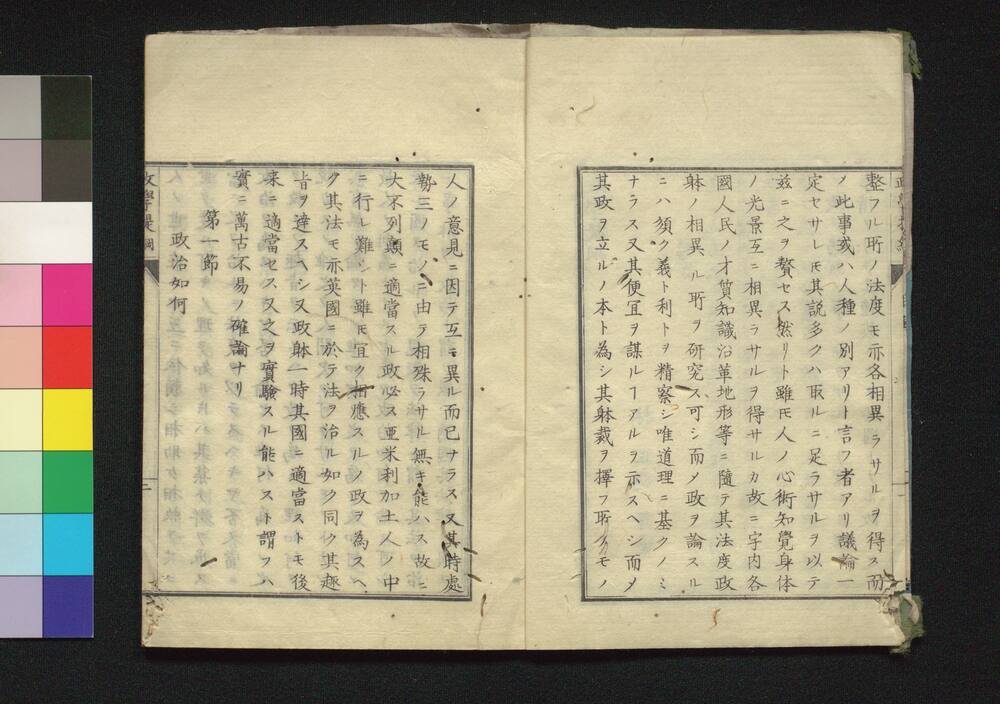 整フル所ノ法度モ亦各相異ラサルヲ得ス而
ノ此事或ハ人種ノ別アリト言フ者アリ議論一
定セサレ𪜈其説多クハ取ルニ足ラサルヲ以テ
茲ニ之ヲ贅セス然リト雖𪜈人ノ心術知覺身体
ノ光景互ニ相異ラサルヲ得サルカ故ニ宇内各
國人民ノ才質知識沿革地形等ニ隨テ其法度政
躰ノ相異ル所ヲ研究ス可シ而〆政ヲ論スル
ニハ須ク義ト利トヲ精察シ唯道理ニ基クノミ
ナラス又其便宜ヲ謀ルヿアルヲ示スヘシ而〆
其政ヲ立ルノ本ト為シ其躰裁ヲ擇フ所ノモノ
人ノ意見ニ因テ互ニ異ル而已ナラス又其時處
勢三ノモノニ由テ相殊ラサル無キ能ハス故ニ
大不列顛ニ適當スル政必ス亜米利加土人ノ中
ニ行レ難シト雖𪜈宜ク相應スルノ政ヲ為スヘ
ク其法モ亦英國ニ於テ法ヲ治ル如ク同ク其趣
旨ヲ達スヘシ又政躰一時其國ニ適當ストモ後
来ニ適當セス又之ヲ實驗スル能ハスト謂フハ
實ニ萬古不易ノ確論ナリ
第一節
政治如何
政學提綱